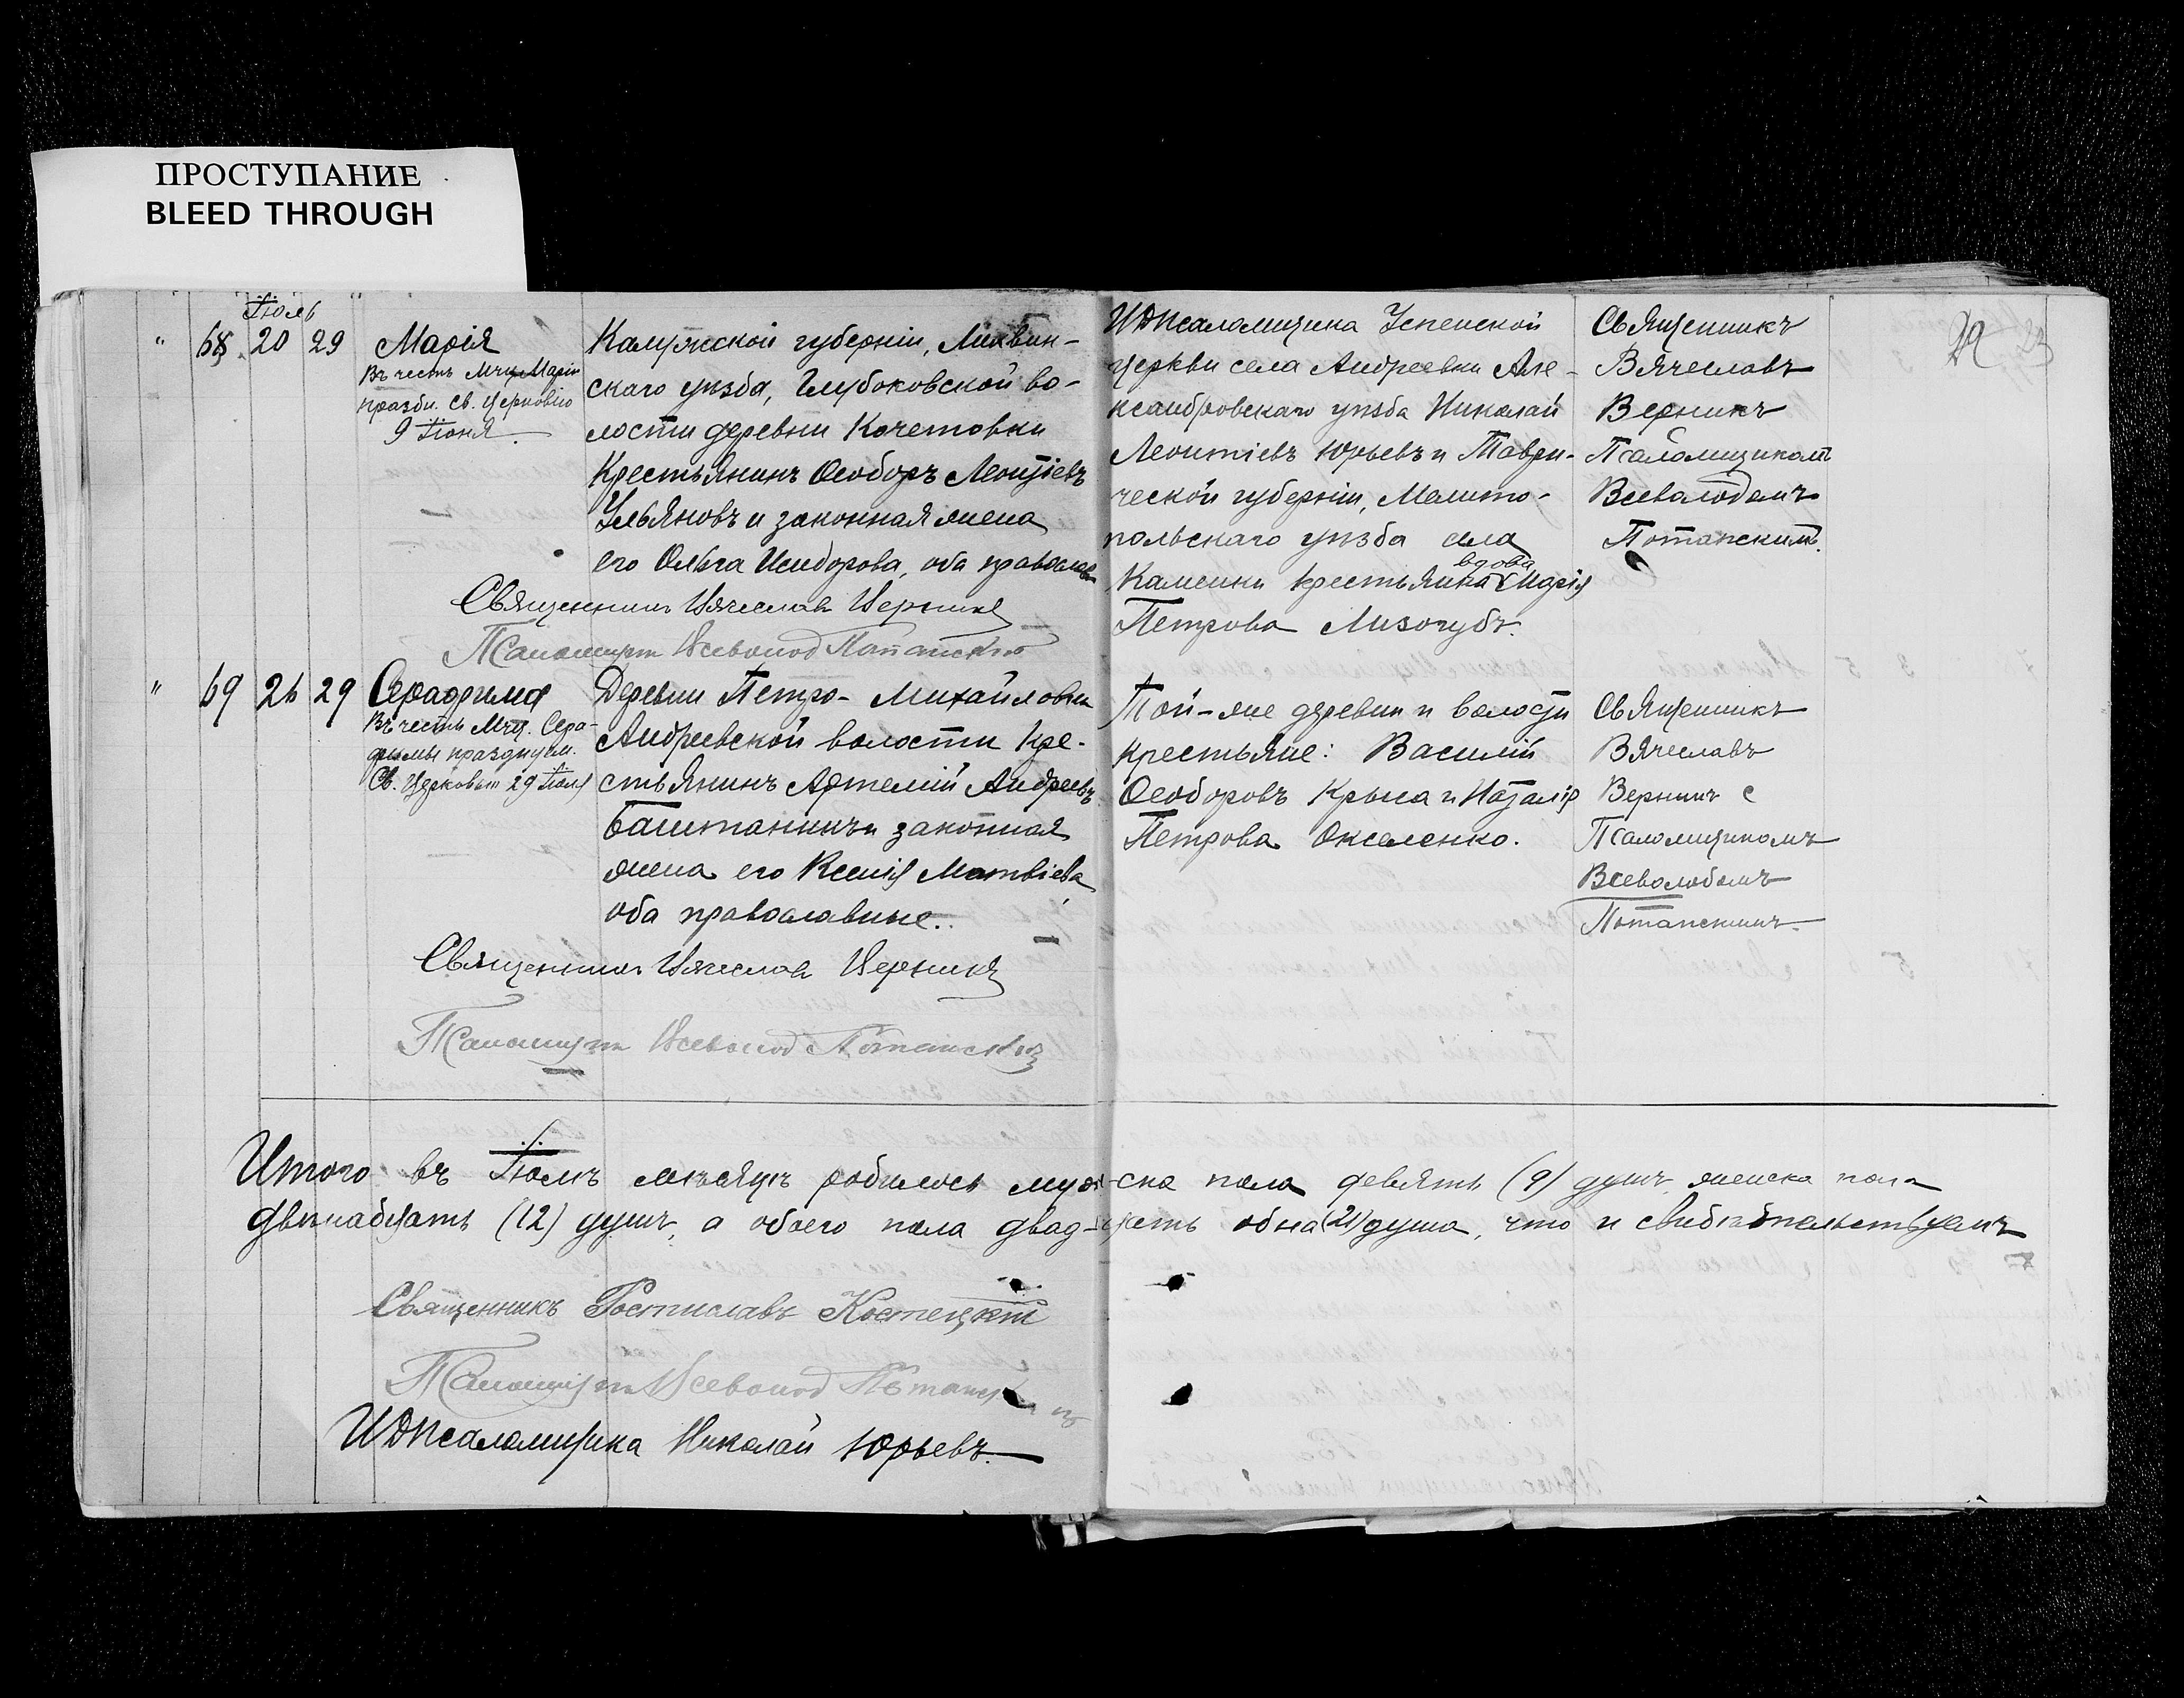 ПРОСТУПАНИЕ
BLEED THROUGH
Іюль
" 68 20 29 Марія
Въ честь Мчц. Маріи
праздн. Св. Церковію
9 Іюня.
Калужской губерніи, Лихвин-
скаго уѣзда, Глубоковской во-
лости деревни Кочетовки
Крестьянинъ Ѳеодоръ Леонтіевъ
Ульяновъ и законная жена
его Ольга Исидорова, оба православн.
Священникъ Вячеславъ Верникъ
Псаломщикъ Всеволод Потапскій
ИДПсаломщика Успенской
церкви села Андреевки Але-
ксандровскаго уѣзда Николай
Леонтіевъ Юрьевъ и Таври-
ческой губерніи, Мелито-
польскаго уѣзда села
вдова
Каменки крестьянка Марія
Петрова Лизогубъ.
Священникъ
Вячеславъ
Верникъ
Псаломщикомъ
Всеволодомъ
Потапскимъ.
29 23
" 69 26 29 Серафима
Въ честь Мчц. Сера-
фимы празднуем.
Св. Церковью 29 Іюля
Деревни Петро-Михайловки
Андреевской волости кре-
стьянинъ Артемій Андреевъ
Баштанникъ и законная
жена его Ксенія Матвіева
оба православные.
Священникъ Вячеславъ Верникъ
Псаломщикъ Всеволод Потапскій
Той-же деревни и волости
крестьяне: Василій
Ѳеодоровъ Крыса и Наталія
Петрова Окселенко.
Священникъ
Вячеславъ
Верникъ с
Псаломщикомъ
Всеволодомъ
Потапскимъ.
Итого въ Іюлѣ мѣсяцѣ родилось мужска пола девять (9) душъ, женска пола
двѣнадцать (12) душъ, а обоего пола двадцать одна (21) душа, что и свидѣтельствуемъ
Священникъ Ростиславъ Костецкій
Псаломщикъ Всеволод Потапскій
ИДПсаломщика Николай Юрьевъ.